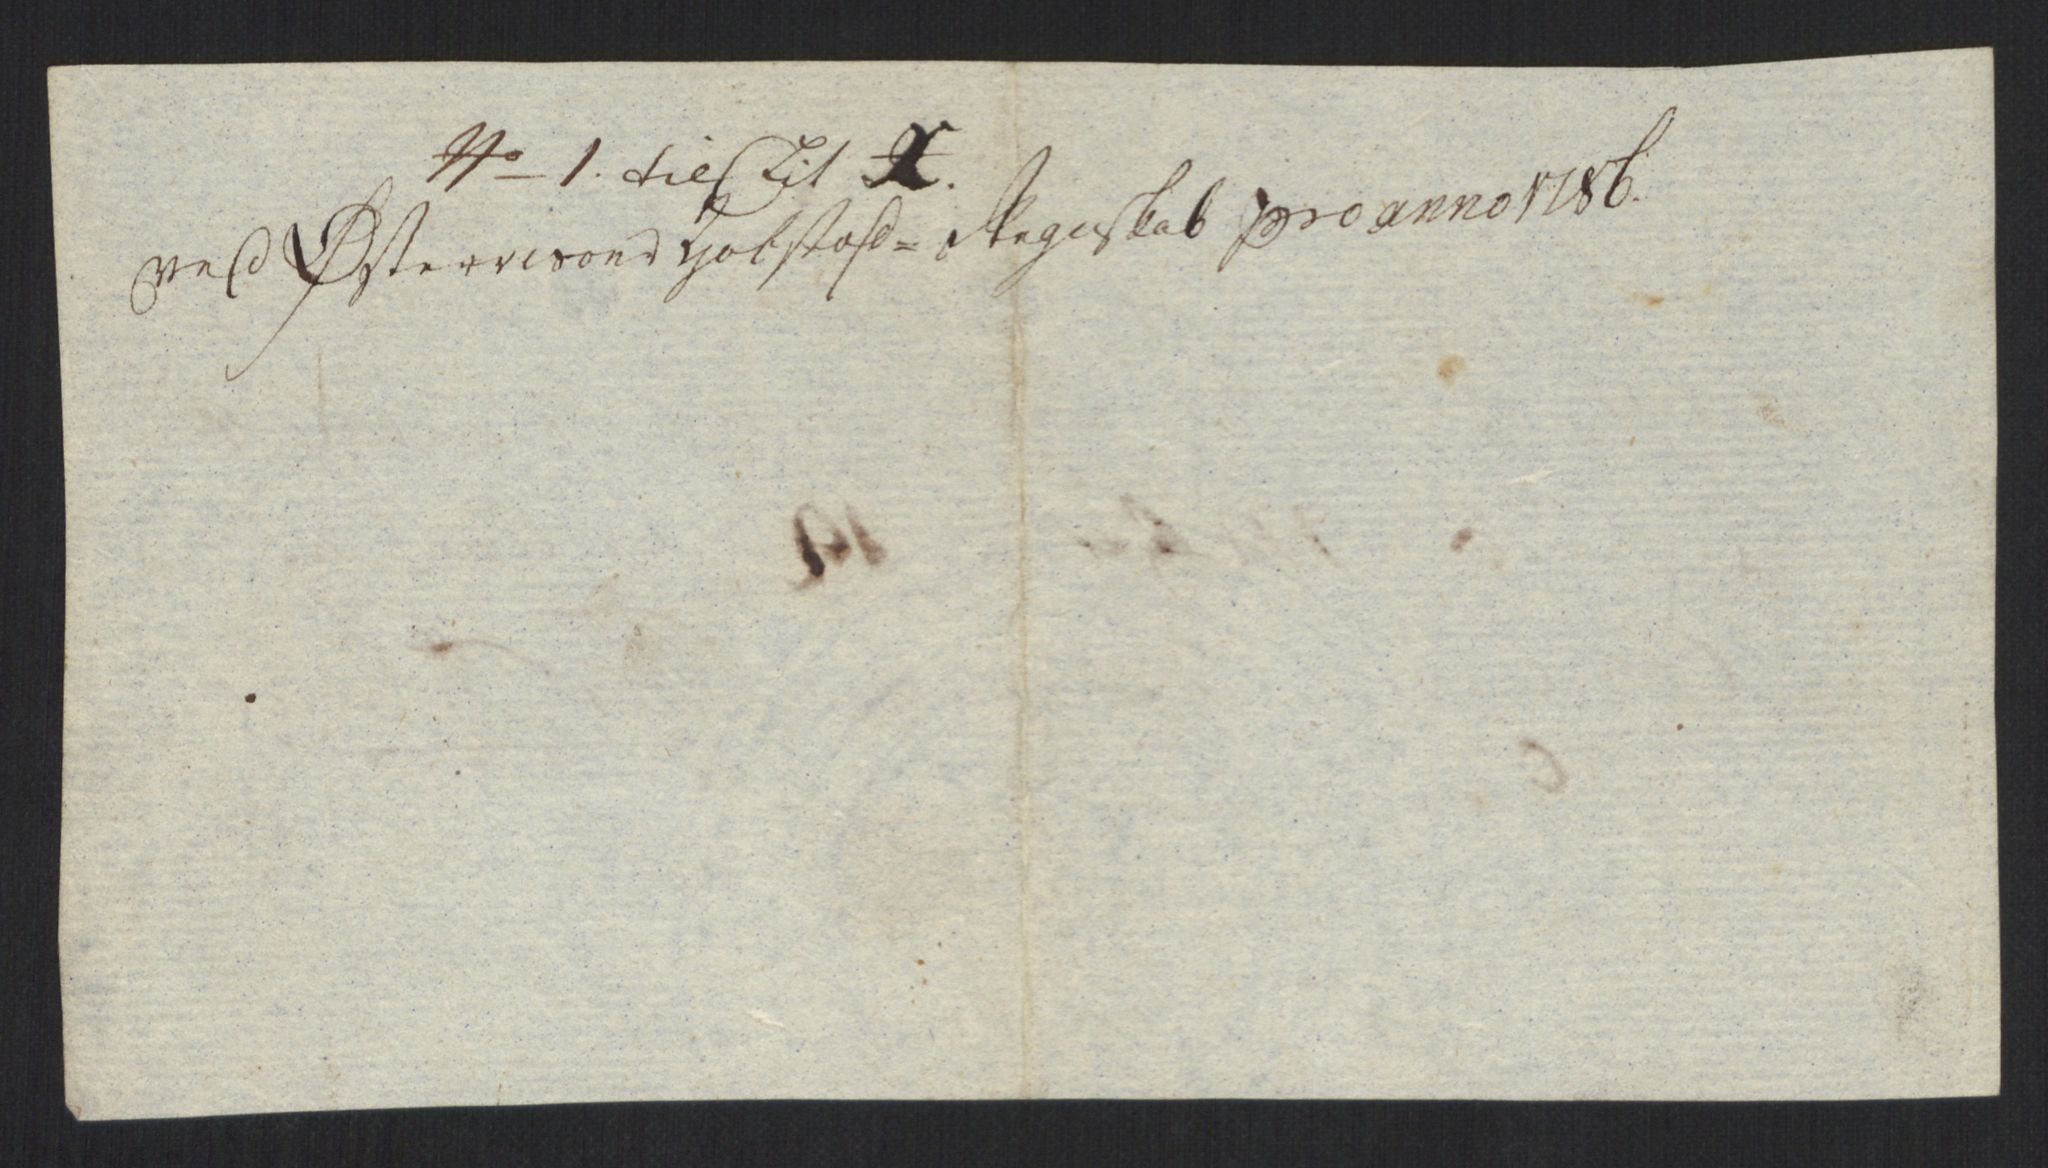 No 1. til Lit X.
ved Østerrisøers Toldsteds Regnskab pro anno 1786.